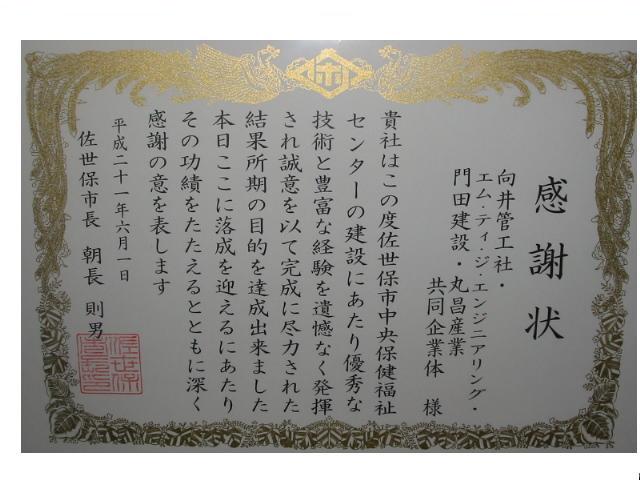 感謝状
向井管工社・
エム・ティ・ジ・エンジニアリング・
門田建設・丸昌産業
共同企業体 様
貴社はこの度佐世保市中央保健福祉
センターの建設にあたり優秀な
技術と豊富な経験を遺憾なく発揮
され誠意を以て完成に尽力された
結果所期の目的を達成出来ました
本日ここに落成を迎えるにあたり
その功績をたたえるとともに深く
感謝の意を表します
平成二十一年六月一日
佐世保市長 朝長 則男